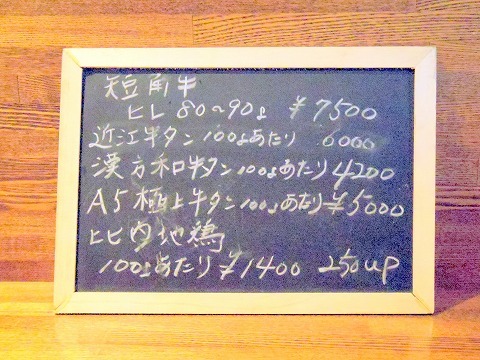 短角牛
ヒレ 80~90g ¥7500
近江牛タン 100gあたり 6000
漢方和牛タン 100gあたり 4200
A5極上牛タン 100gあたり ¥5000
比内地鶏
100gあたり ¥1400 250up